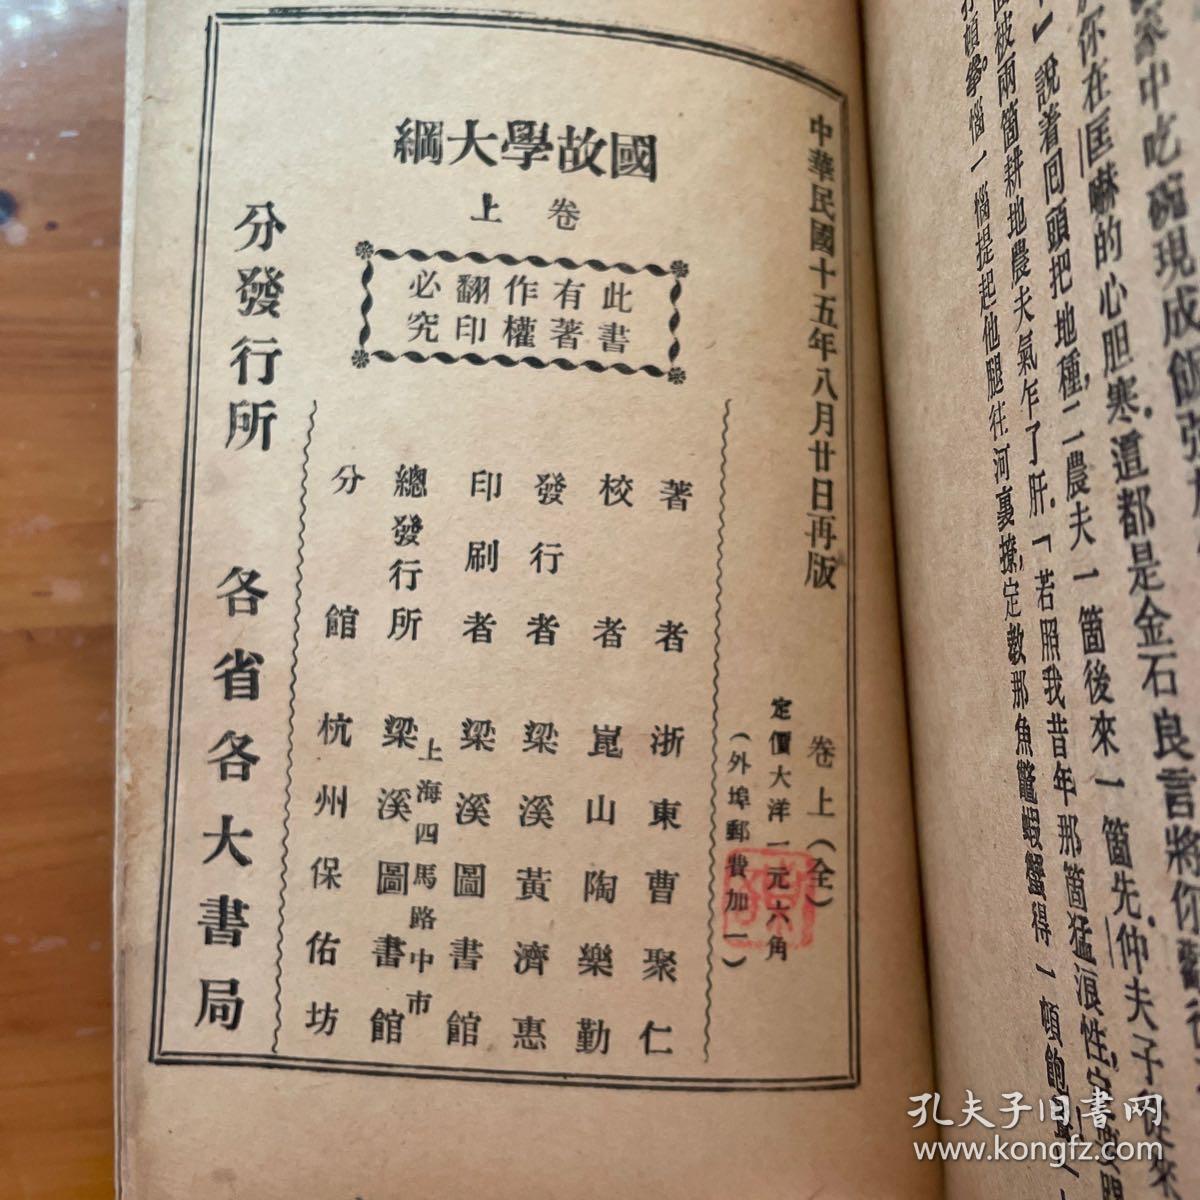 中華民國十五年八月廿日再版
國故學大綱
卷上
此書
有著
作權
翻印
必究
卷上(全)
定價大洋一元六角
(外埠郵費加一)
著者 浙東曹聚仁
校者 崑山陶樂勤
發行者 梁溪黃濟惠
印刷者 梁溪圖書館
總發行所 上海四馬路中市
梁溪圖書館
分館 杭州保佑坊
分發行所 各省各大書局
家中吃碗現成飯強
你在匡嚇的心胆寒道都是金石良言將你
』說着回頭把地種二農夫一箇後來一箇先仲夫子從來
被兩箇耕地農夫氣乍了肝「若照我昔年那箇猛浪性
惱一惱提起他腿往河裏撩定教那魚鼈蝦蟹得一頓飽
孔夫子旧书网
www.kongfz.com